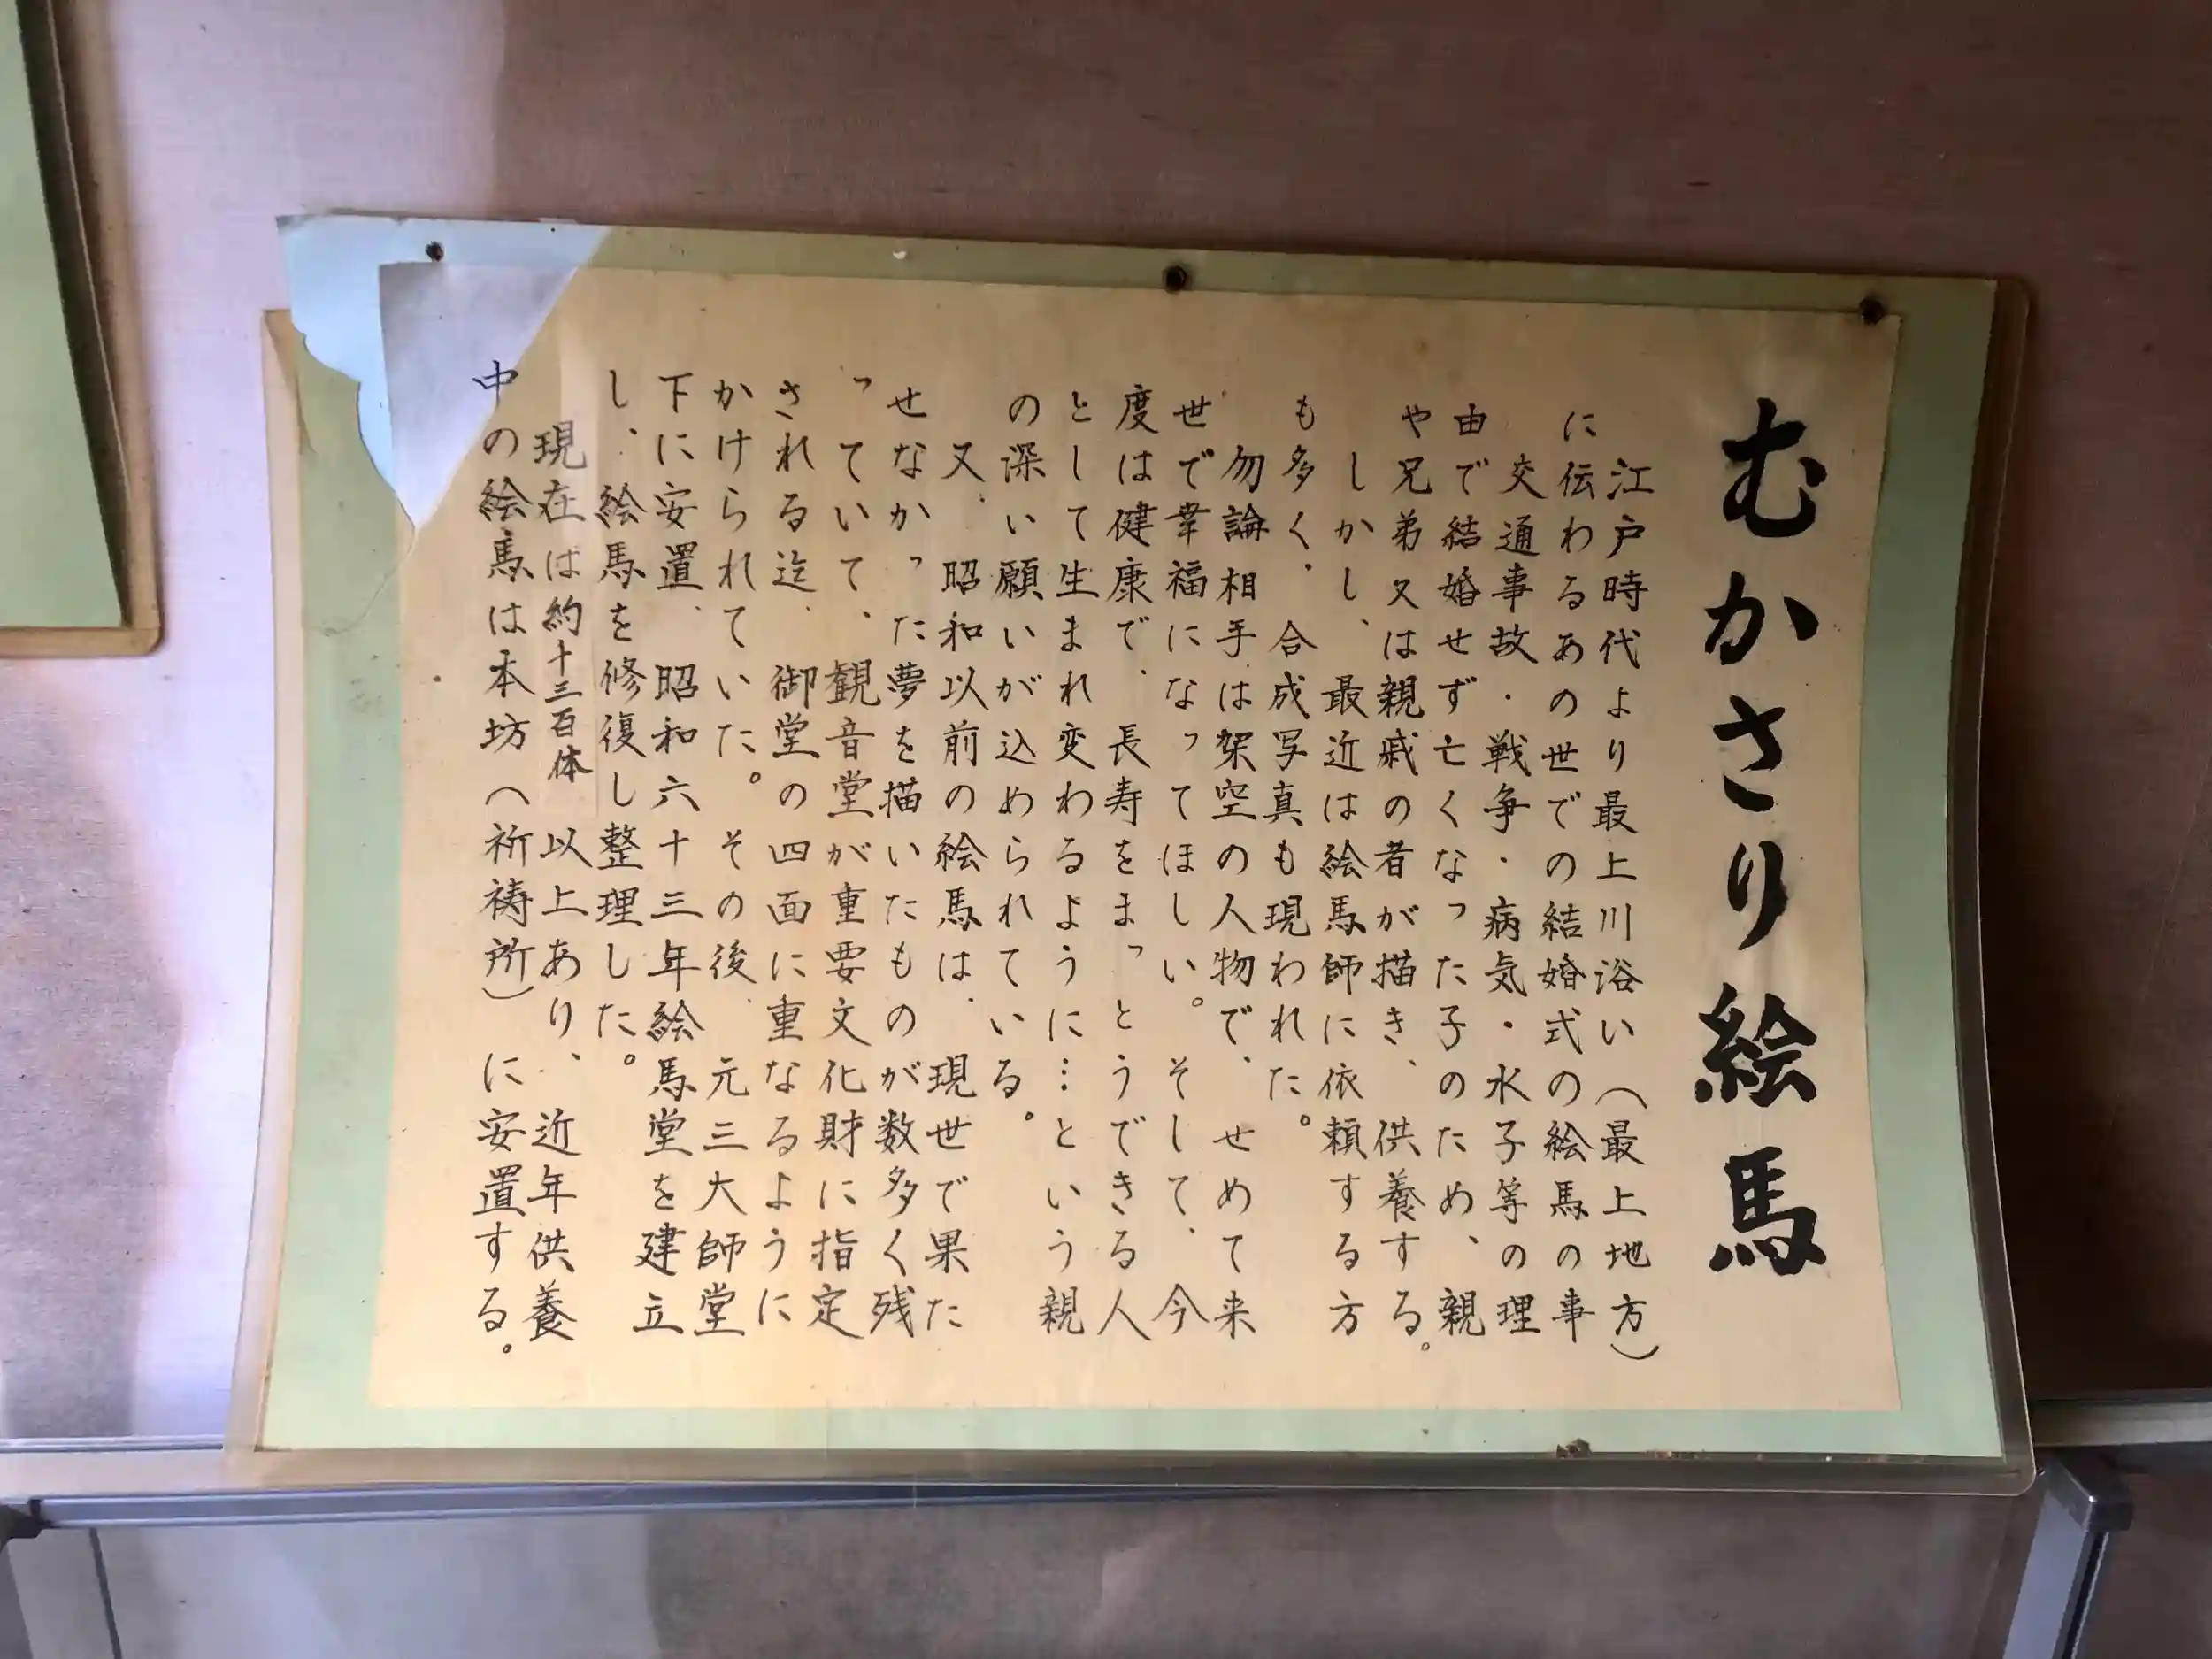 むかさり絵馬
江戸時代より最上川浴い(最上地方)
に伝わるあの世での結婚式の絵馬の事
交通事故・戦争・病気・水子等の理
由で結婚せず亡くなった子のため、親
や兄弟又は親戚の者が描き、供養する。
しかし、最近は絵馬師に依頼する方
も多く、合成写真も現われた。
勿論相手は架空の人物で、せめて来
世で幸福になってほしい。そして、今
度は健康で、長寿をまっとうできる人
として生まれ変わるように…という親
の深い願いが込められている。
又、昭和以前の絵馬は、現世で果た
せなかった夢を描いたものが数多く残
っていて、観音堂が重要文化財に指定
される迄、御堂の四面に重なるように
かけられていた。その後、元三大師堂
下に安置、昭和六十三年絵馬堂を建立
し、絵馬を修復し整理した。
現在は約十三百体以上あり、近年供養
中の絵馬は本坊(祈祷所)に安置する。